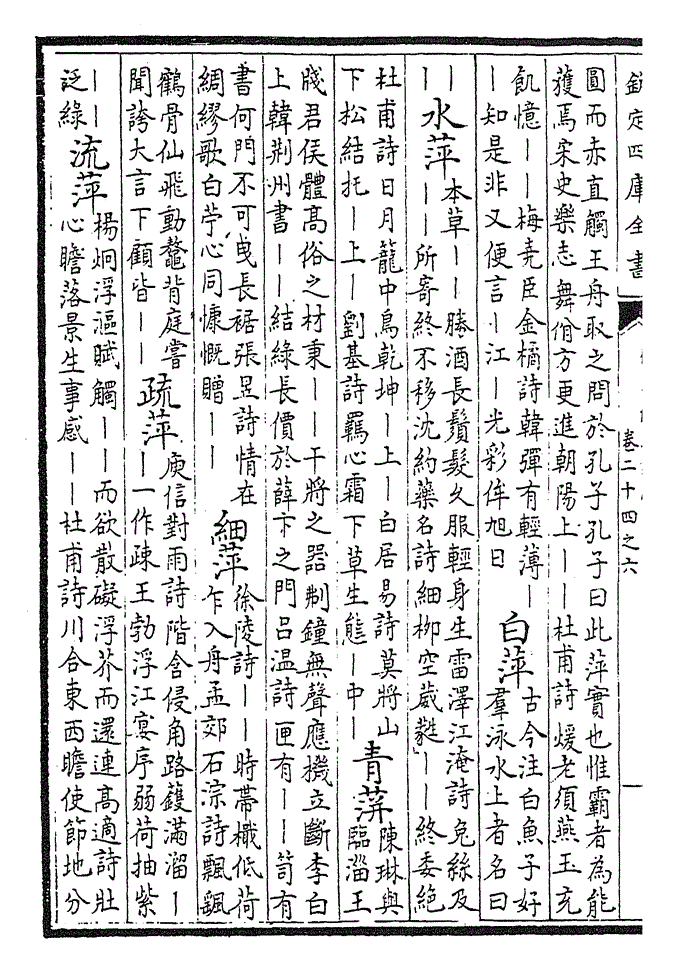 欽定四庫全書 卷二十四之六
圓而赤直觸王舟取之問於孔子孔子曰此萍實也惟霸者為能
獲焉宋史樂志舞佾方更進朝陽上｜｜杜甫詩煖老須燕玉充
飢憶｜｜梅堯臣金橘詩韓彈有輕薄｜
｜知是非又便言｜江｜光彩侔旭日
白萍
古今注白魚子好
羣泳水上者名曰
｜
｜
水萍
本草｜｜勝酒長鬚髮久服輕身生雷澤江淹詩兔絲及
｜｜所寄終不移沈約藥名詩細柳空葳蕤｜｜終委絕
杜甫詩日月籠中鳥乾坤｜上｜白居易詩莫將山
下松結托｜上｜劉基詩羈心霜下草生態｜中｜
青萍
陳琳與
臨淄王
牋君侯體高俗之材秉｜｜干將之器刜鐘無聲應機立斷李白
上韓荊州書｜｜結綠長價於薛卞之門呂溫詩匣有｜｜笥有
書何門不可曳長裾張昱詩情在
綢繆歌白苧心同慷慨贈｜｜
細萍
徐陵詩｜｜時帶檝低荷
乍入舟孟郊石淙詩飄飄
鶴骨仙飛動鼇背庭嘗
聞誇大言下顧皆｜｜
疏萍
庾信對雨詩階含侵角路鑊滿溜｜
｜一作疎王勃浮江宴序弱荷抽紫
｜｜
泛綠
流萍
楊炯浮漚賦觸｜｜而欲散礙浮芥而還連高適詩壯
心瞻落景生事感｜｜杜甫詩川合東西瞻使節地分